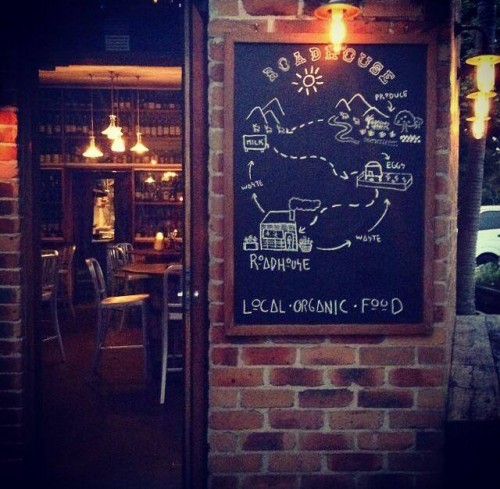 ROADHOUSE
PRODUCE
MILK
EGGS
WASTE
WASTE
ROADHOUSE
LOCAL · ORGANIC · FOOD